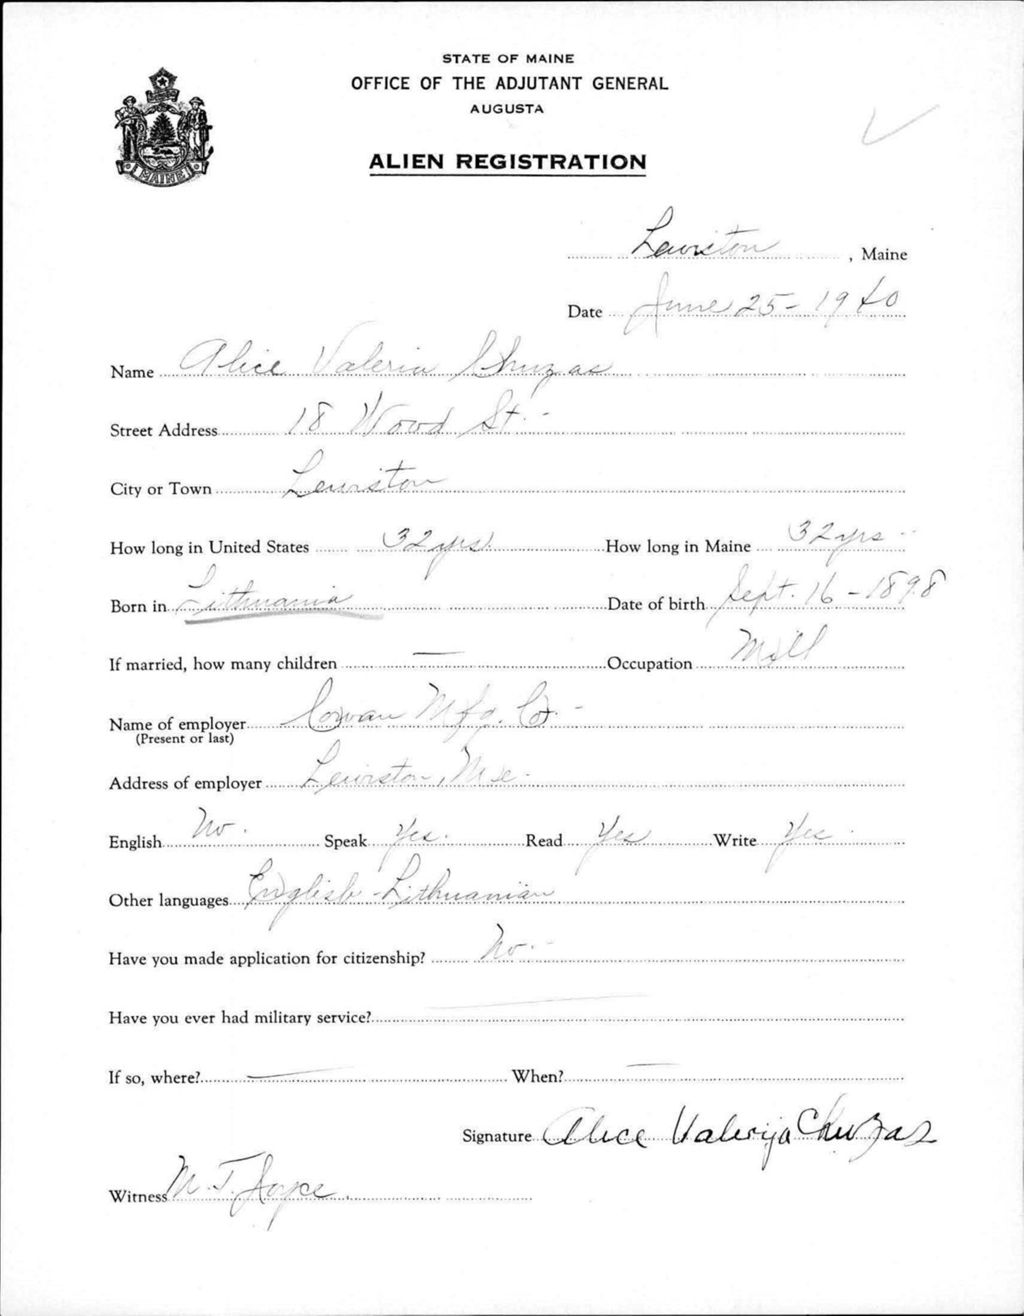 STATE OF MAINE
OFFICE OF THE ADJUTANT GENERAL
AUGUSTA
MAINE
ALIEN REGISTRATION
Lewiston, Maine
Date June 25-1940
Name Alice Valeria Chuzas
Street Address 18 Wood St.-
City or Town Lewiston
How long in United States 32 yrs. How long in Maine 32 yrs -
Born in Lithuania Date of birth Sept. 16-1898
If married, how many children — Occupation Mill
Name of employer Cowan Mfg. Co. -
(Present or last)
Address of employer Lewiston, Me.
English No. Speak Yes. Read Yes Write Yes
Other languages English-Lithuanian
Have you made application for citizenship? No.-
Have you ever had military service? —
If so, where? — When? —
Signature Alice Valerija Chuzas
Witness M. T. Joyce